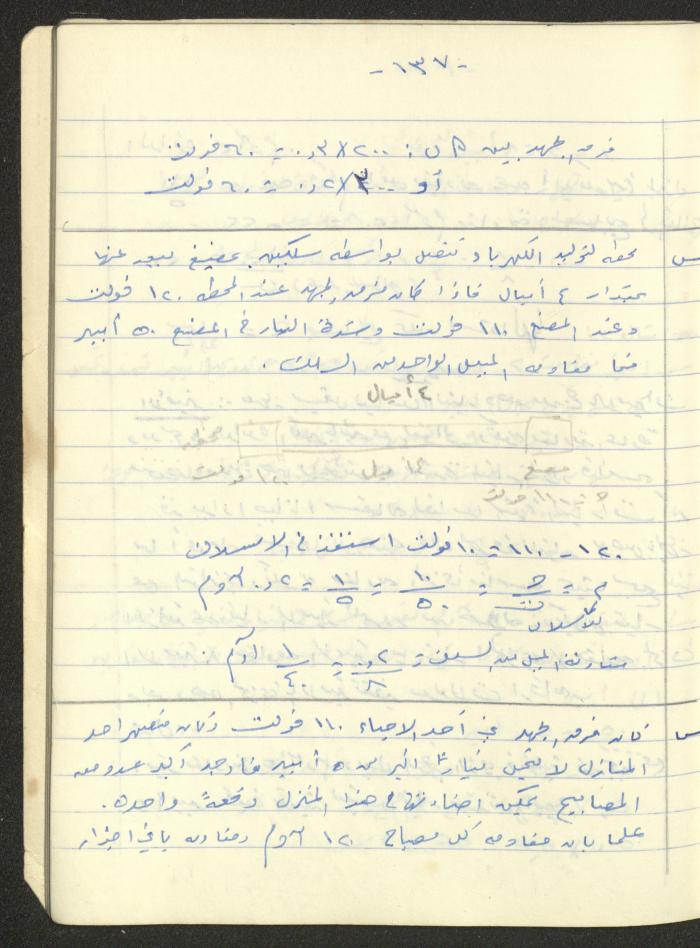 - ١٣٧ -
فرق الجهد بين ب : ٢٠٠ × ٠,٣ = ٦٠ فولت
أو ٣٠٠ × ٠,٢ = ٦٠ فولت
س محطة لتوليد الكهرباء تتصل بواسطة سلكين بمصنع يبعد عنها
بمقدار ٤ أميال فاذا كان فرق الجهد عند المحطة ١٢٠ فولت
وعند المصنع ١١٠ فولت وشدة التيار في المصنع ٥٠ أمبير
فما مقاومة الميل الواحد من السلك .
٤ أميال
مصنع ٤ ميل محطة
١١٠ فولت ١٢٠ فولت
١٢٠ - ١١٠ = ١٠ فولت استنفذ في الاسلاك
م = ج / ت = ١٠ / ٥٠ = ١ / ٥ = ٠,٢ أوم
للأسلاك
مقاومة الميل من السلك = ٠,٢ / ٨ = ١ / ٤٠ أوم .
س كان فرق الجهد في أحد الاحياء ١١٠ فولت وكان منصهر احد
المنازل لا يتحمل تيارا اكبر من ٥ أمبير فاوجد أكبر عدد من
المصابيح يمكن اضاءتها في هذا المنزل دفعة واحدة .
علما بان مقاومة كل مصباح ١٢٠ أوم ومقاومة باقي اجزاء